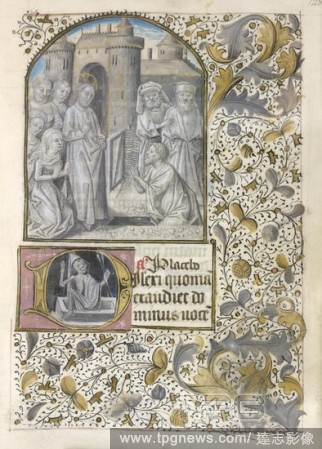 Placebo
Dñi quonia
exaudiet do
minus voce
www.tpgnews.com/達志影像